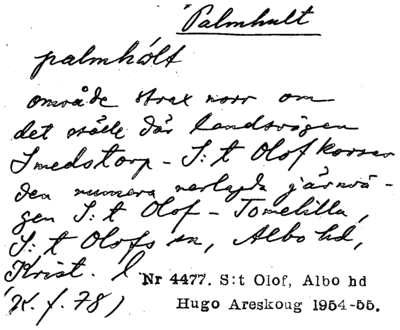 Palmhult
palmhólt
område strax norr om
det ställe där landsvägen
Smedstorp - S:t Olof korsar
den numera nerlagda järnvä-
gen S:t Olof - Tomelilla,
S:t Olofs sn, Albo hd,
Krist. l
(K. f. 78)
Nr 4477. S:t Olof, Albo hd
Hugo Areskoug 1954-55.